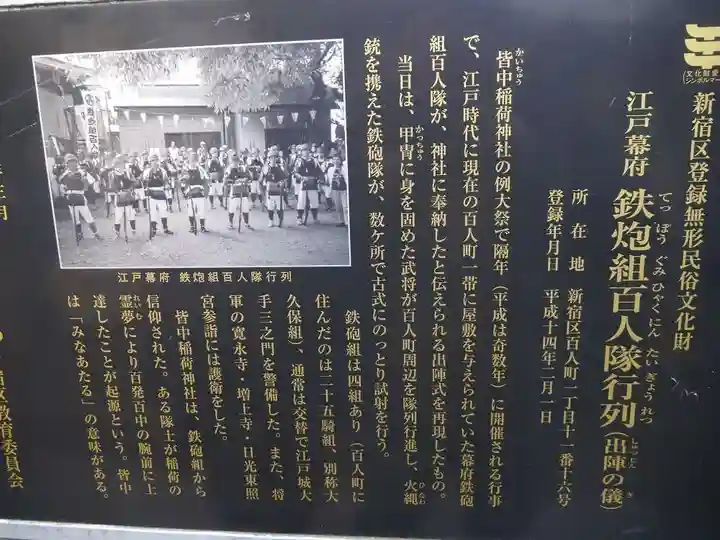 (文化財愛
シンボルマー
新宿区登録無形民俗文化財
江戸幕府 鉄炮組百人隊行列(出陣の儀)
てっぽうぐみひゃくにんたいぎょうれつ
しゅつじん ぎ
所在地 新宿区百人町一丁目十一番十六号
登録年月日 平成十四年二月一日
皆中稲荷神社の例大祭で隔年(平成は奇数年)に開催される行事
かいちゅう
で、江戸時代に現在の百人町一帯に屋敷を与えられていた幕府鉄砲
組百人隊が、神社に奉納したと伝えられる出陣式を再現したもの。
当日は、甲冑に身を固めた武将が百人町周辺を隊列行進し、火縄
かっちゅう
ひなわ
銃を携えた鉄砲隊が、数ケ所で古式にのっとり試射を行う。
江戸幕府 鉄炮組百人隊行列
鉄炮組は四組あり(百人町に
住んだのは二十五騎組、別称大
久保組)、通常は交替で江戸城大
手三之門を警備した。また、将
軍の寛永寺・増上寺・日光東照
宮参詣には護衛をした。
皆中稲荷神社は、鉄炮組から
信仰された。ある隊士が稲荷の
霊夢により百発百中の腕前に上
れいむ
達したことが起源という。皆中
は「みなあたる」の意味がある。
宿区教育委員会